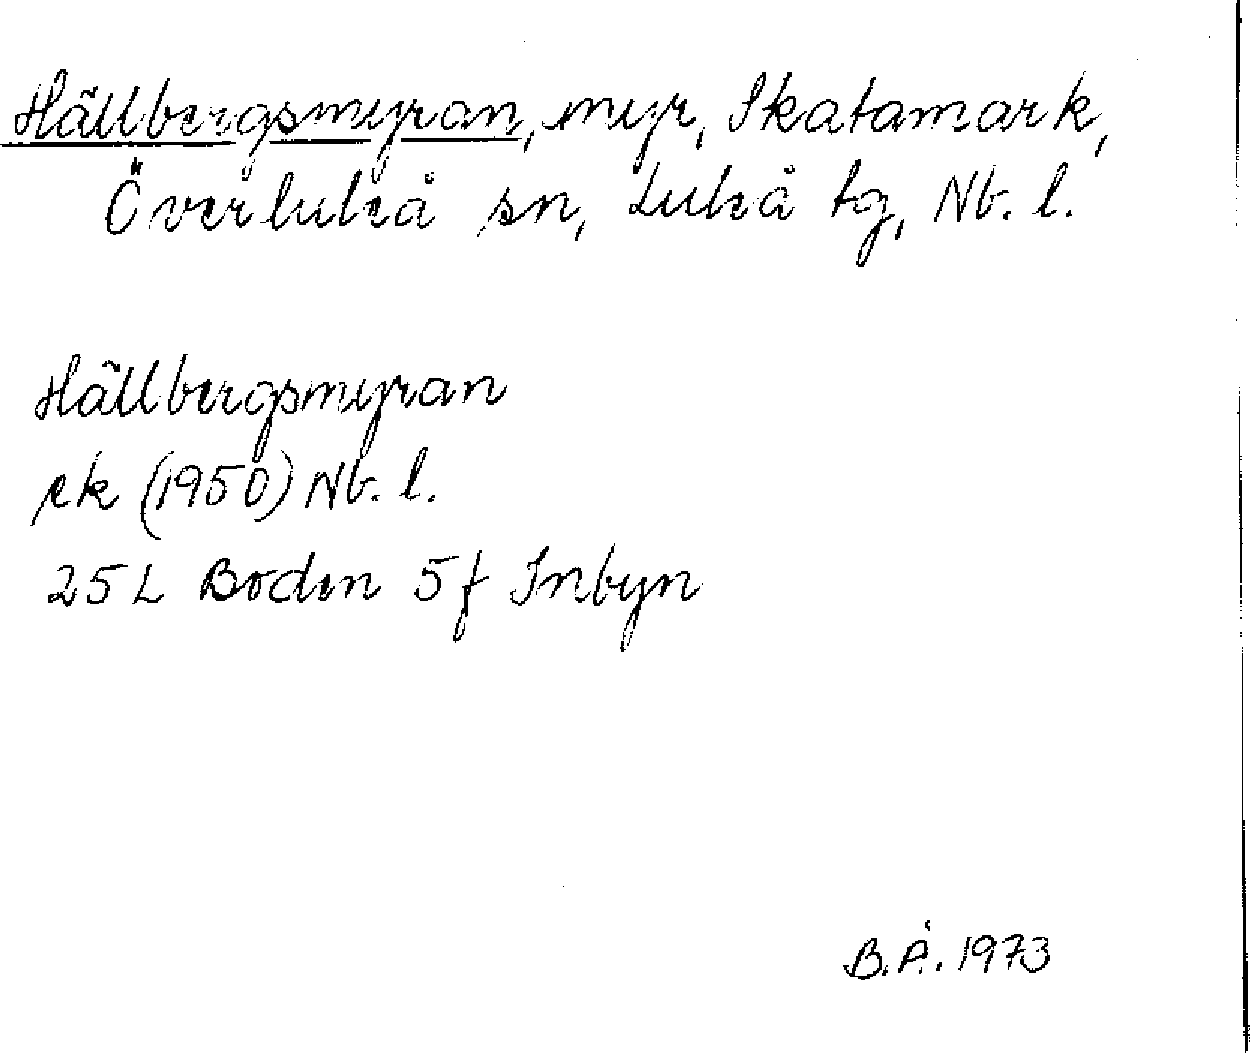 Hällbergsmyran, myr, Skatamark,
Överluleå sn, Luleå tg, Nb. l.
Hällbergsmyran
ek (1950) Nb. l.
25 L Boden 5f Inbyn
B.Å. 1973